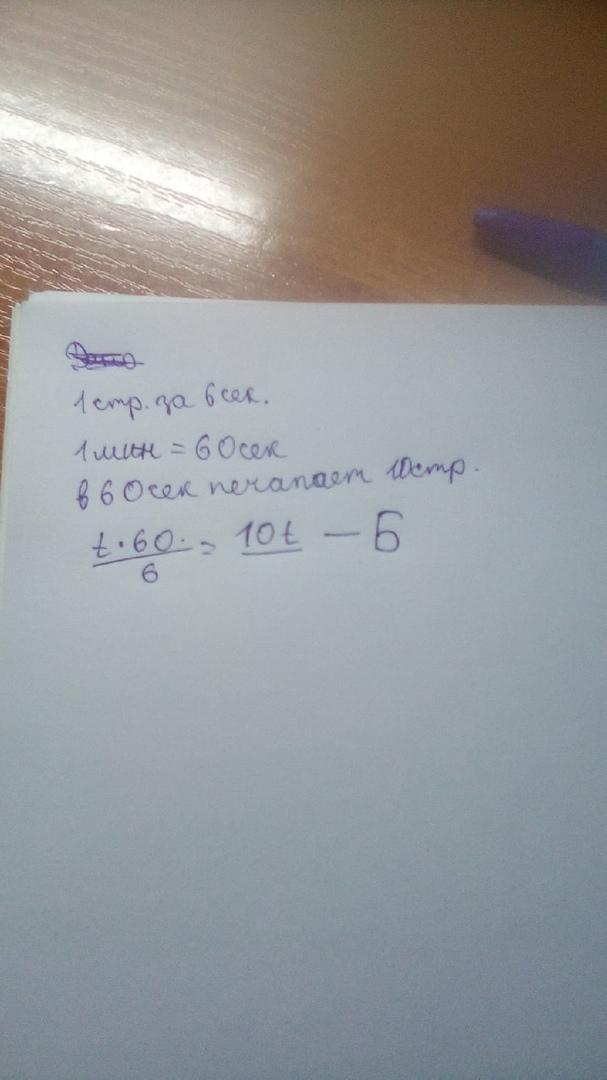 1 стр. за 6 сек.
1 мин = 60 сек
в 60 сек печатает 10 стр.
t·60. / 6 = 10t — Б